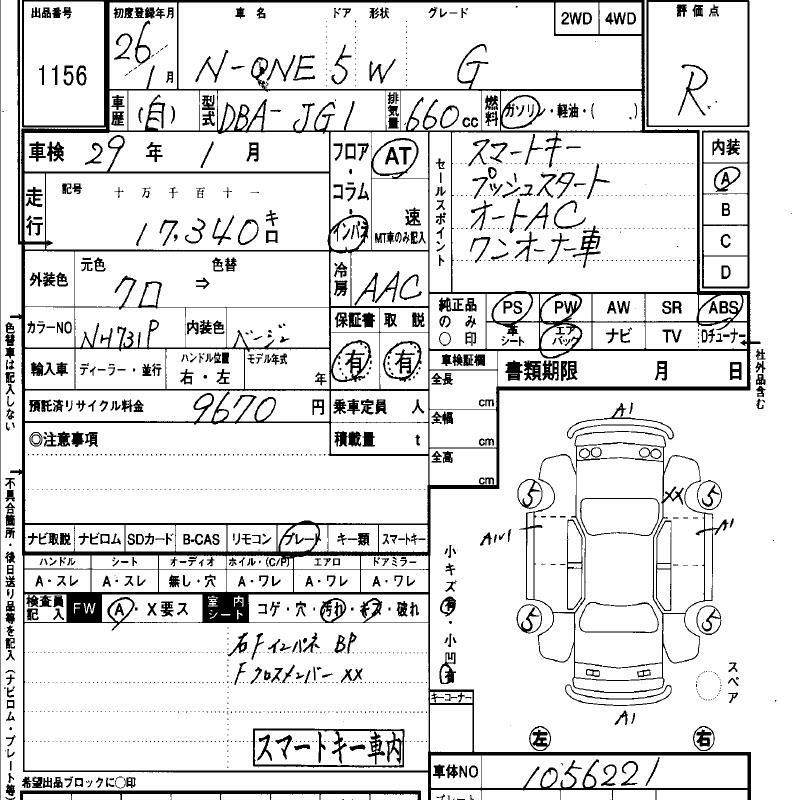 出品番号 初度登録年月 車名 ドア 形状 グレード 2WD 4WD 評価点
1156 26/1月 N-ONE 5 W G R
車歴 (自) 型式 DBA-JG1 排気量 660cc 燃料 ガソリン・軽油・( )
車検 29年 1月 フロア・コラム・インパネ AT 速 MT車のみ記入
セールスポイント
スマートキー
プッシュスタート
オートAC
ワンオーナー車
内装
A
B
C
D
走行 記号 十 万 千 百 十 一
17,340 キロ
外装色 元色 クロ ⇒ 色替 冷房 AAC
純正品のみ○印 PS PW AW SR ABS
革シート エアバック ナビ TV Dチューナー
カラーNO NH731P 内装色 ベージュ 保証書 取説
有 有
輸入車 ディーラー・並行 ハンドル位置 右・左 モデル年式 年
車検証欄 書類期限 月 日
全長 cm
全幅 cm
全高 cm
預託済リサイクル料金 9670円 乗車定員 人
◎注意事項 積載量 t
色替車は記入しない
社外品含む
ナビ取説 ナビロム SDカード B-CAS リモコン プレート キー類 スマートキー
ハンドル シート オーディオ ホイル・(C/P) エアロ ドアミラー
A・スレ A・スレ 無し・穴 A・ワレ A・ワレ A・ワレ
検査員記入 FW A・X要ス 室内シート コゲ・穴・汚れ・キズ・破れ
右Fインパネ BP
Fクロスメンバー XX
スマートキー車内
不具合箇所・後日送り品等を記入(ナビロム・プレート等)
A1
5 XX 5
A1
5 5
A1
小キズ有・小凹有
キーコーナー
スペア
左 右
車体NO 1056221
希望出品ブロックに○印